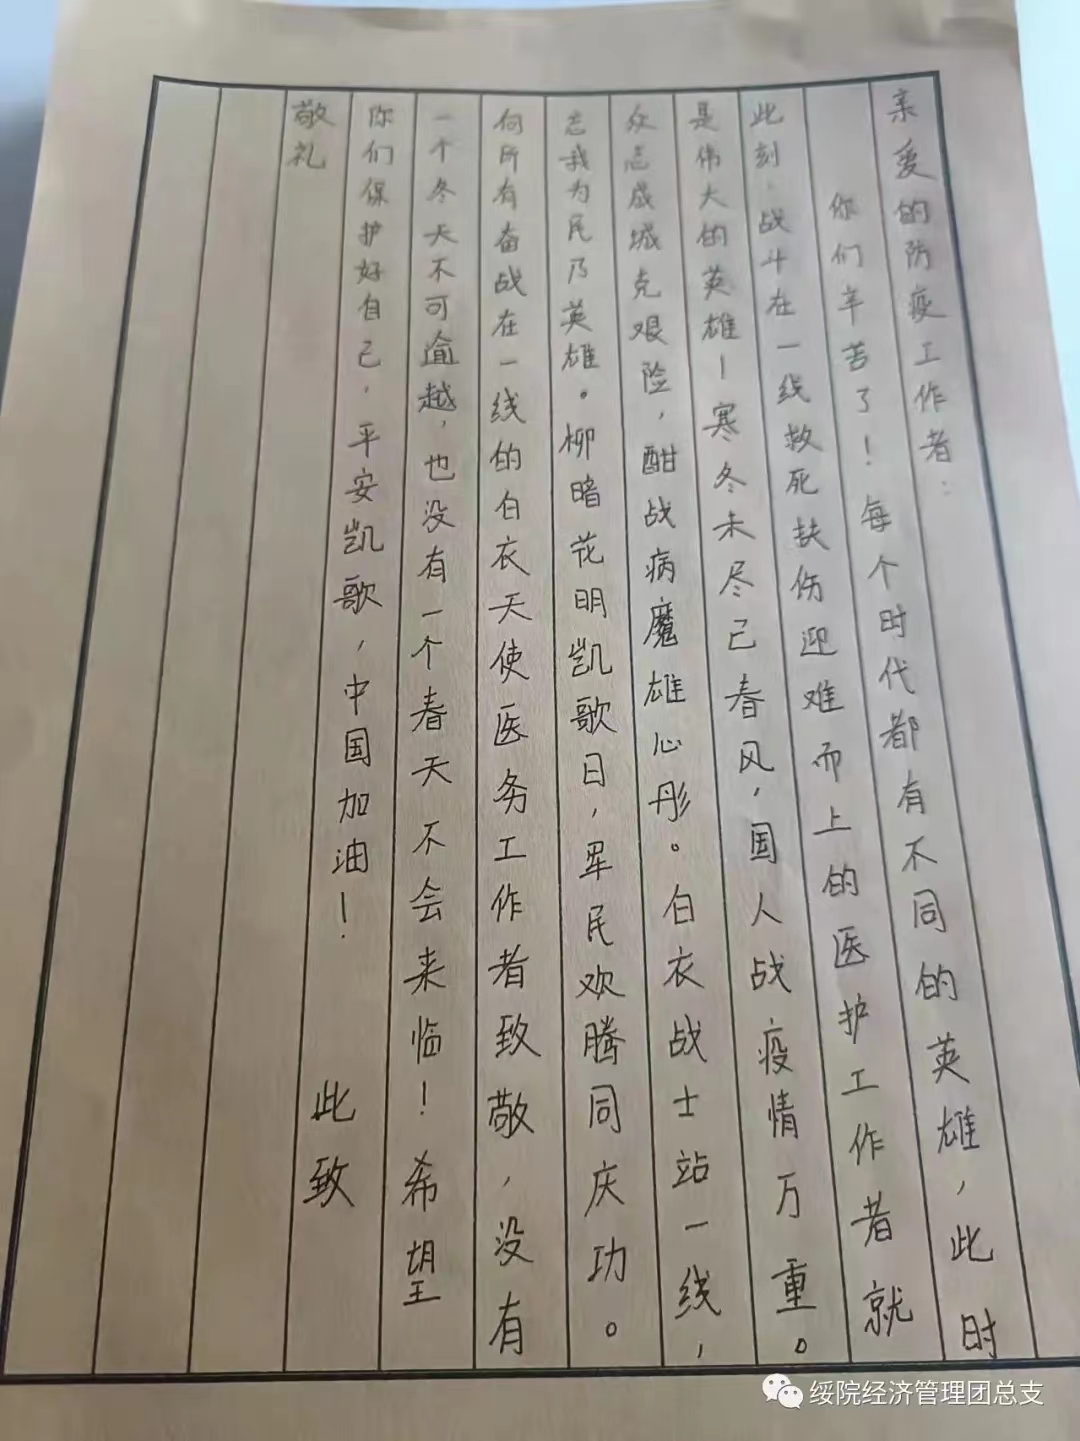 亲爱的防疫工作者：
你们辛苦了！每个时代都有不同的英雄，此时
此刻，战斗在一线救死扶伤迎难而上的医护工作者就
是伟大的英雄！寒冬未尽已春风，国人战疫情万重。
众志成城克艰险，酣战病魔雄心彤。白衣战士站一线，
忘我为民乃英雄。柳暗花明凯歌日，军民欢腾同庆功。
向所有奋战在一线的白衣天使医务工作者致敬，没有
一个冬天不可逾越，也没有一个春天不会来临！希望
你们保护好自己，平安凯歌，中国加油！
此致
敬礼
绥院经济管理团总支